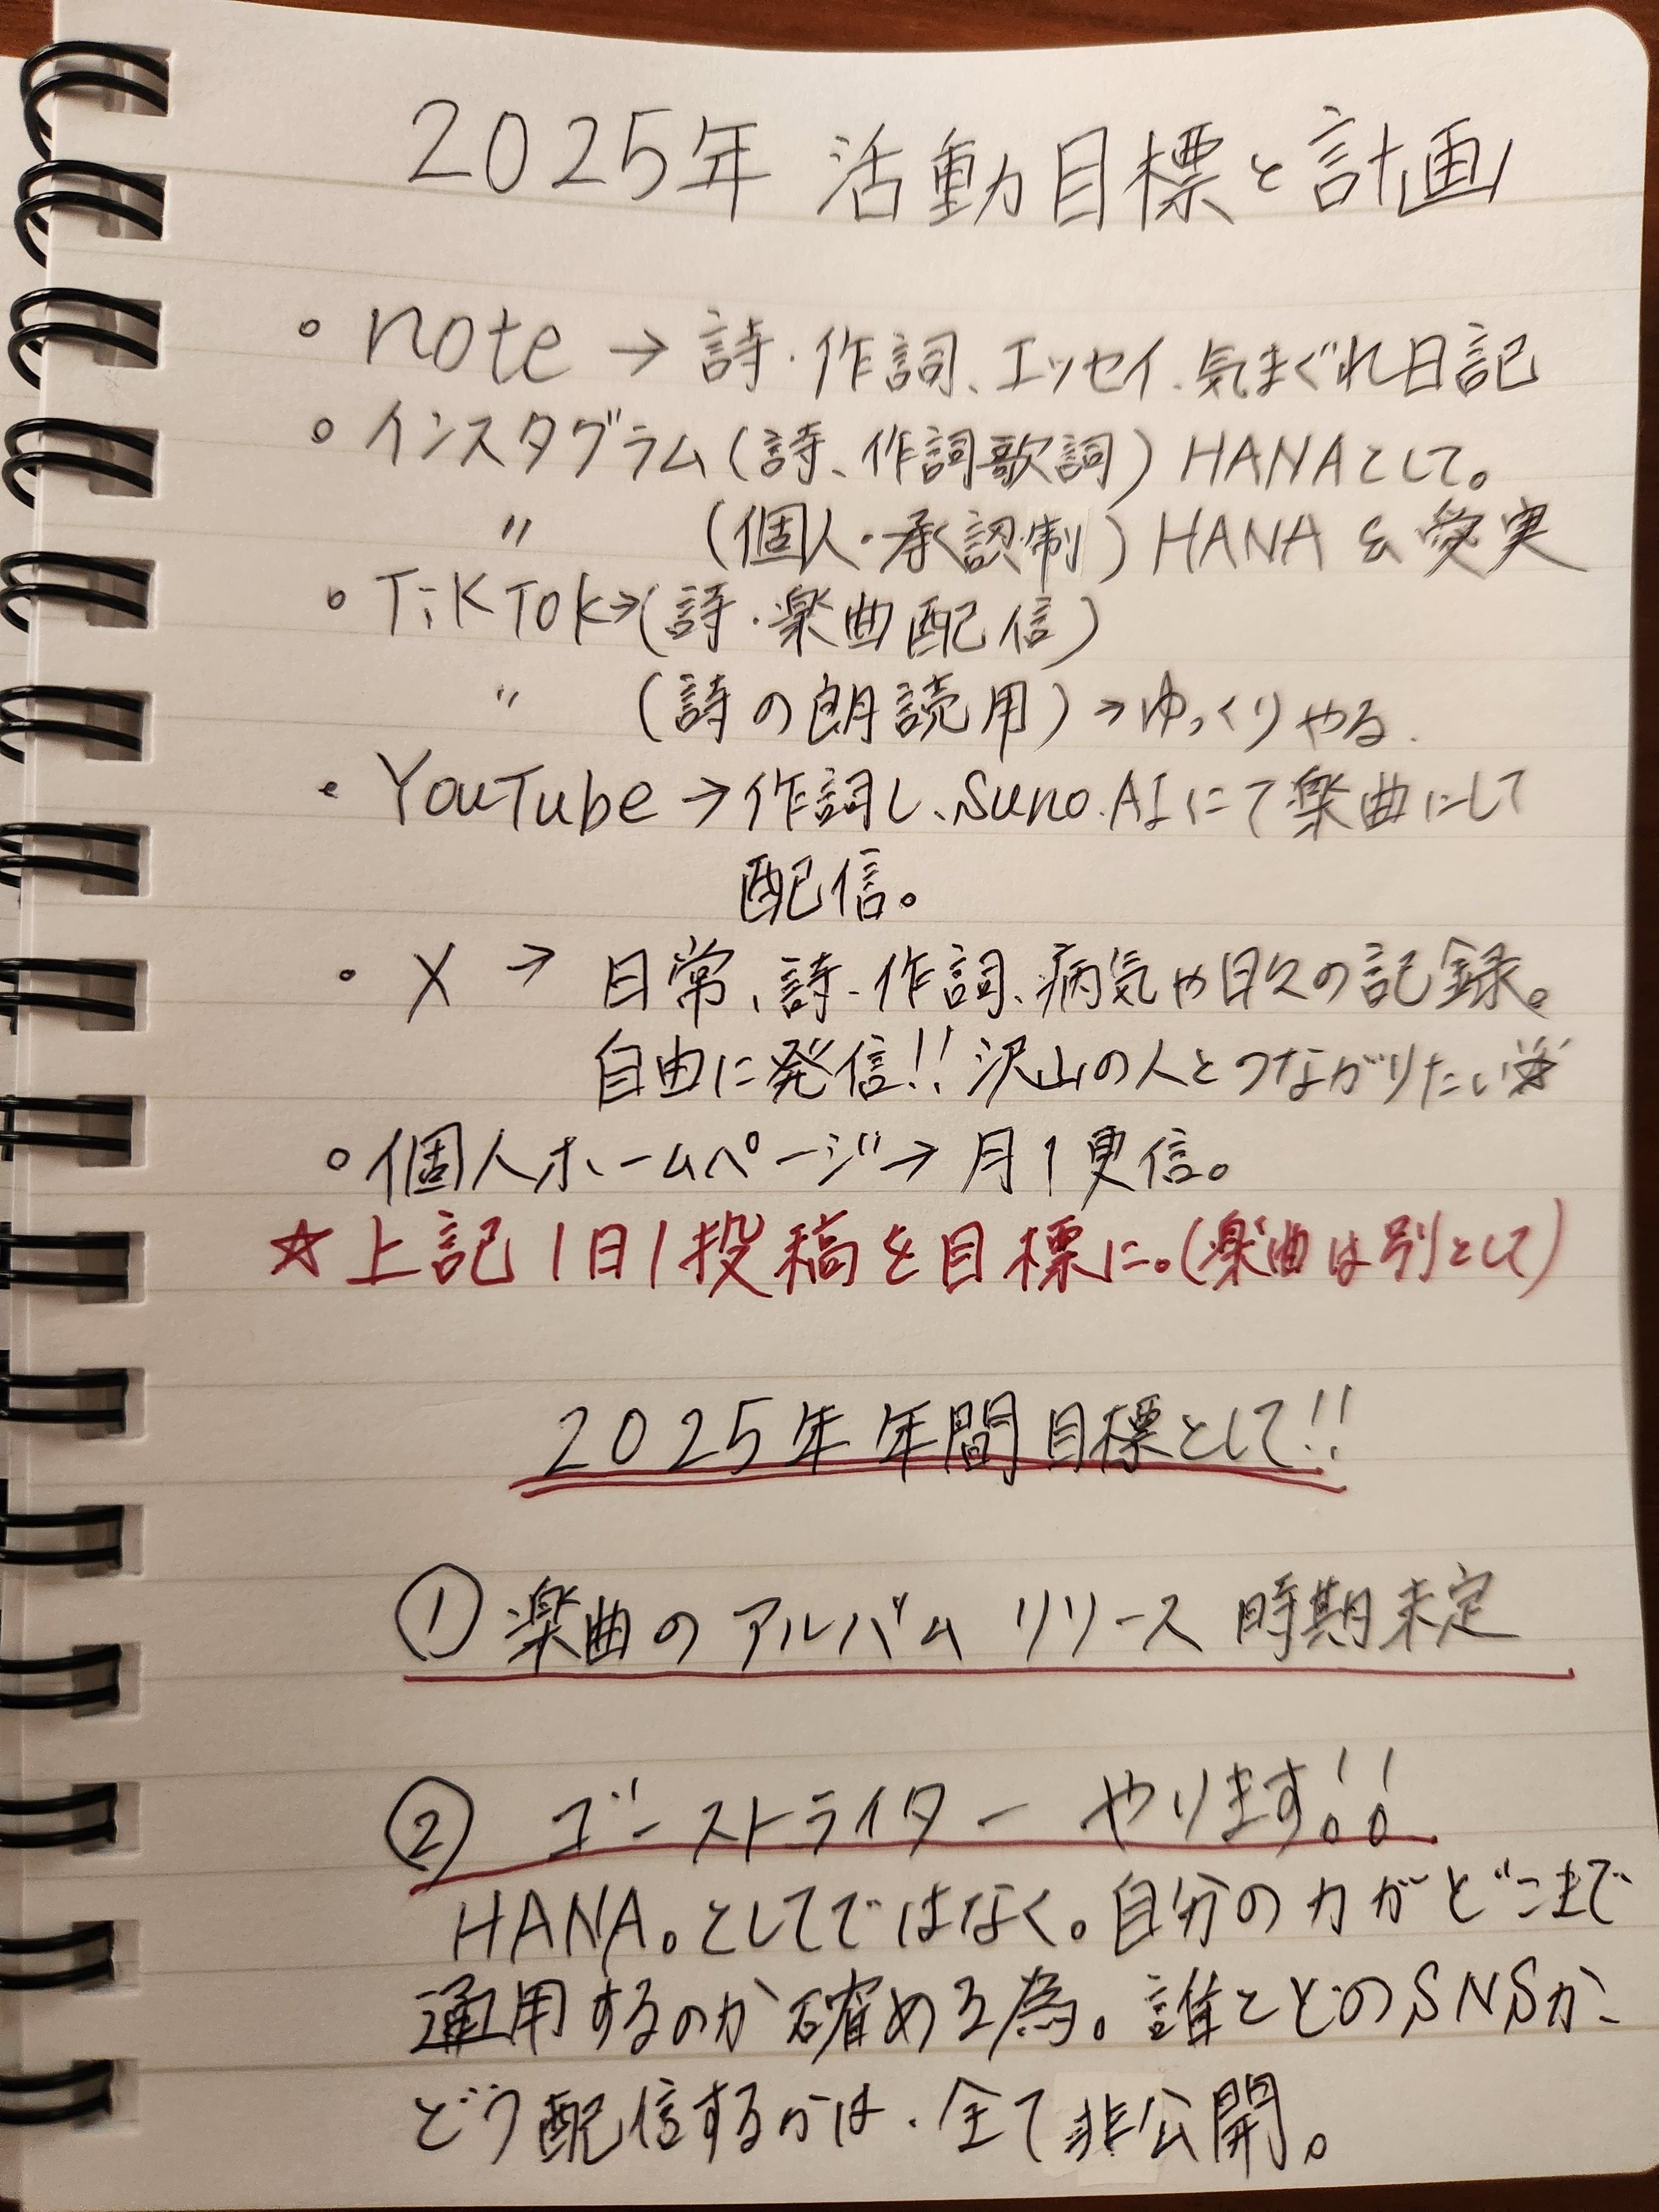 2025年 活動目標と計画
・note → 詩・作詞、エッセイ、気まぐれ日記
・インスタグラム(詩、作詞歌詞) HANAとして。
〃 (個人・承認制) HANA & 愛実
・TikTok→(詩・楽曲配信)
〃 (詩の朗読用)→ゆっくりやる.
・YouTube→作詞し、Suno.AIにて楽曲にして
配信。
・X → 日常、詩・作詞、病気や日々の記録。
自由に発信!! 沢山の人とつながりたい☆
・個人ホームページ→ 月1更信。
☆上記1日1投稿を目標に。(楽曲は別として)
2025年 年間目標として!!
① 楽曲のアルバム リリース 時期未定
② ゴーストライター やります!!
HANA。としてではなく。自分の力がどこまで
通用するのか確める為。誰とどのSNSか、
どう配信するかは、全て非公開。